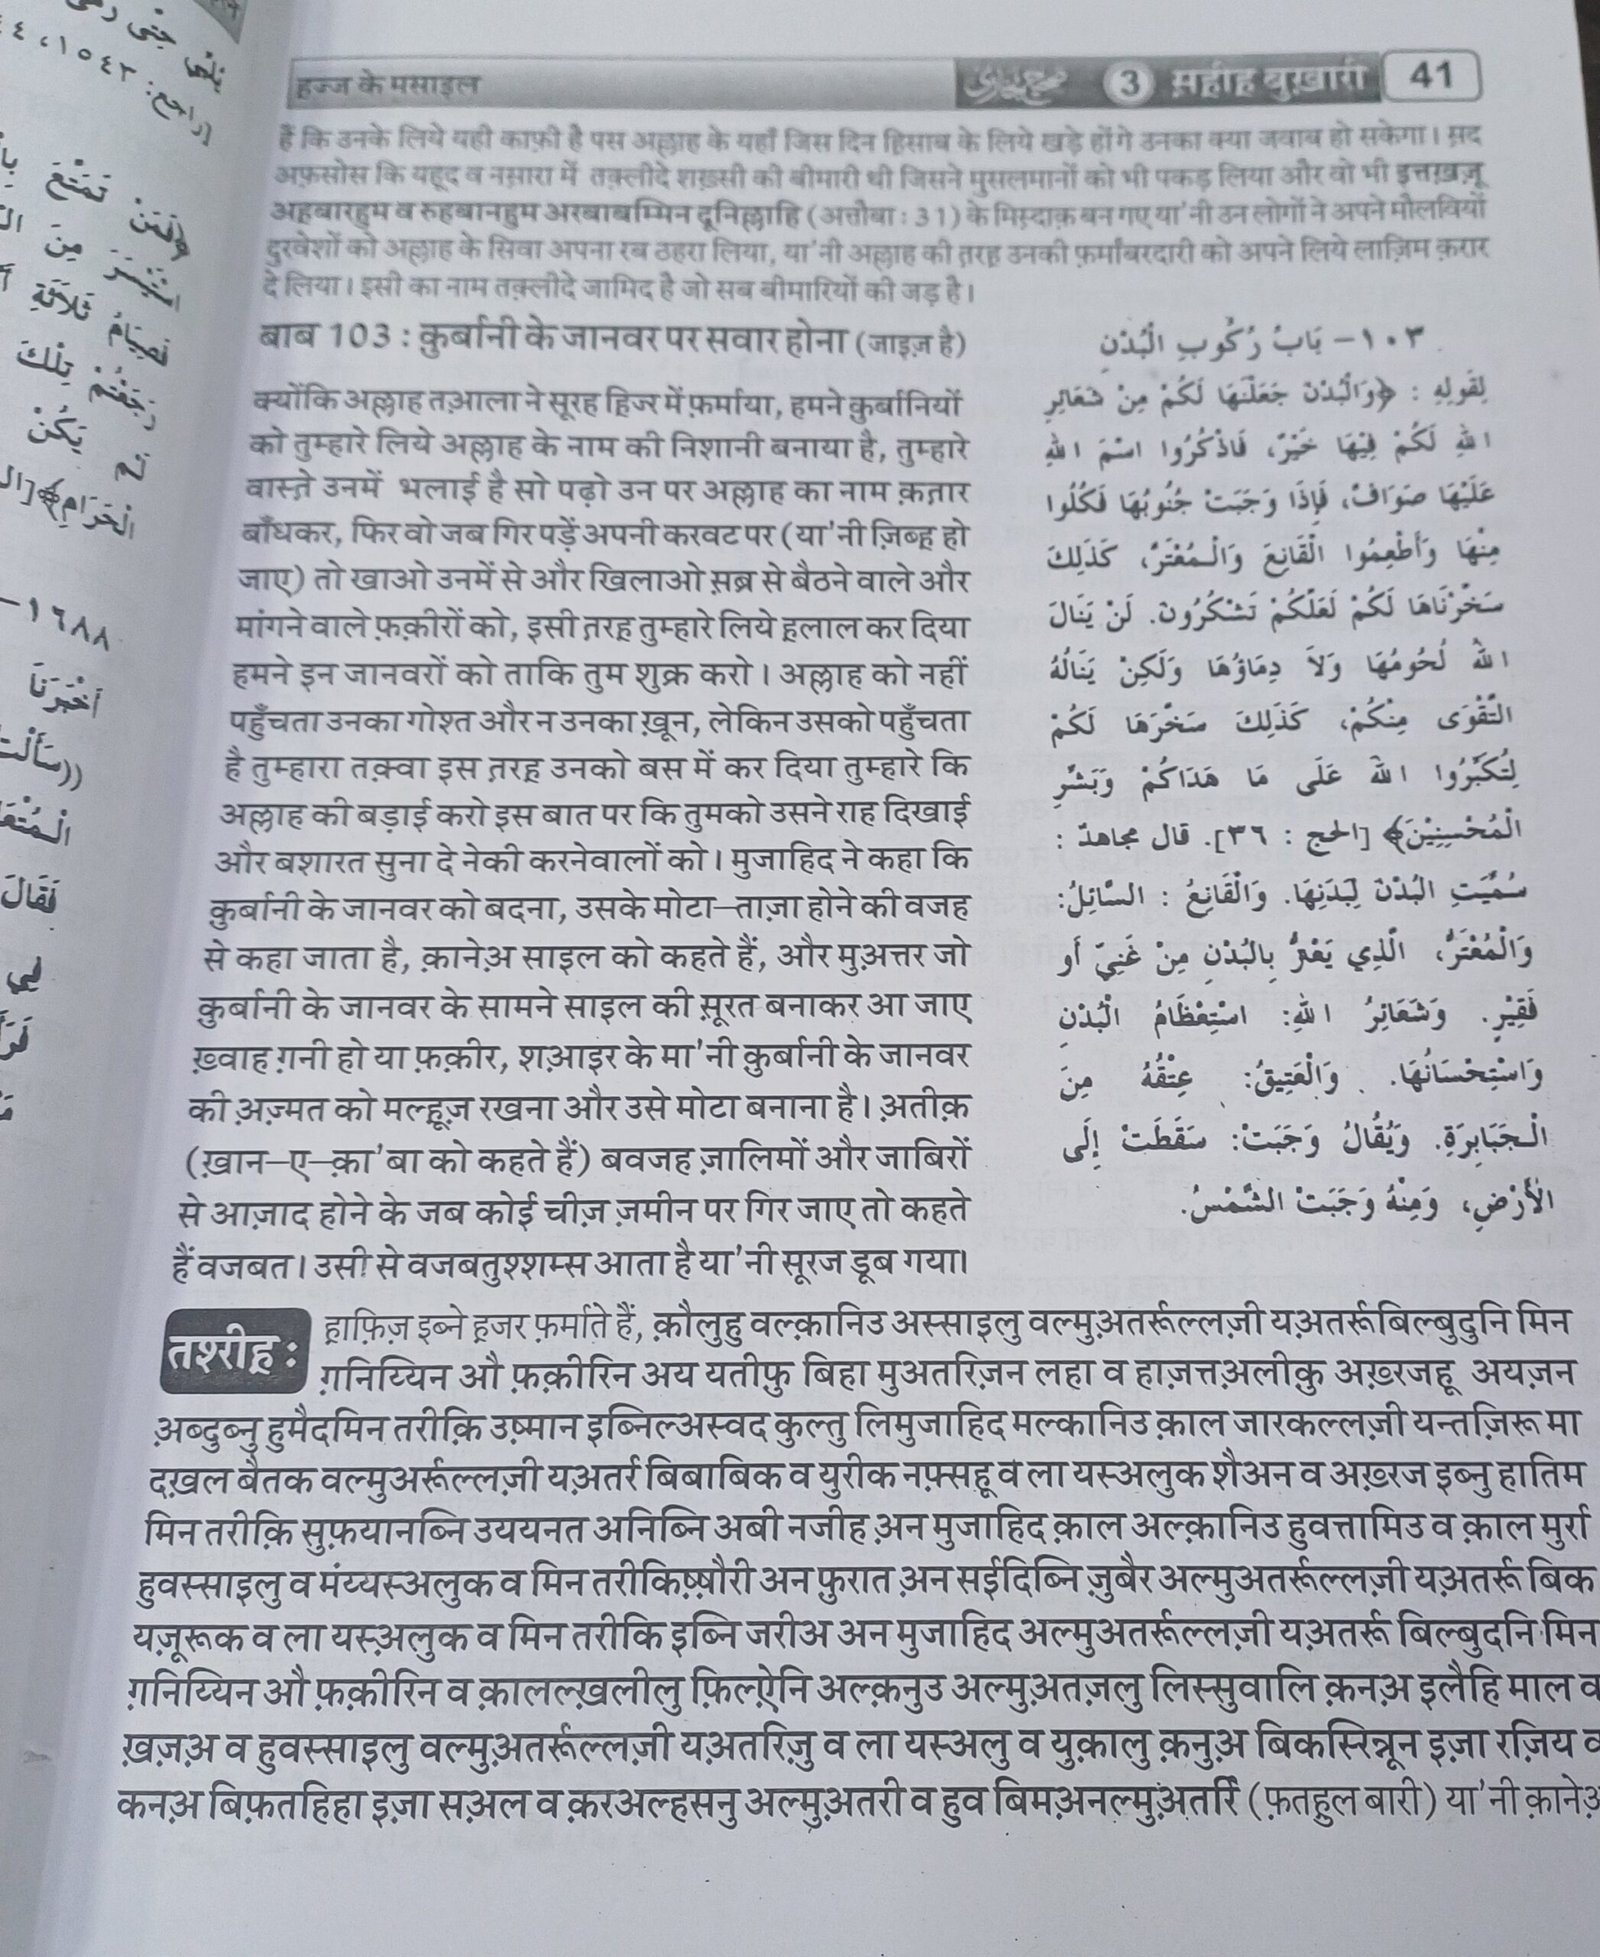 हज्ज के मसाइल
صحیح بخاری 3 सहीह बुख़ारी 41
हैं कि उनके लिये यही काफ़ी है पस अल्लाह के यहाँ जिस दिन हिसाब के लिये खड़े होंगे उनका क्या जवाब हो सकेगा। स़द
अफ़सोस कि यहूद व नस़ारा में तक़्लीदे शख़्सी की बीमारी थी जिसने मुसलमानों को भी पकड़ लिया और वो भी इत्तख़ज़ू
अहबारहुम व रुहबानहुम अरबाबम्मिन दूनिल्लाहि (अत्तौबा : 31) के मिस़्दाक़ बन गए या'नी उन लोगों ने अपने मौलवियों
दुरवेशों को अल्लाह के सिवा अपना रब ठहरा लिया, या'नी अल्लाह की त़रह़ उनकी फ़र्मांबरदारी को अपने लिये लाज़िम क़रार
दे लिया। इसी का नाम तक़्लीदे जामिद है जो सब बीमारियों की जड़ है।
बाब 103 : क़ुर्बानी के जानवर पर सवार होना (जाइज़ है)
क्योंकि अल्लाह तआ़ला ने सूरह ह़िज्र में फ़र्माया, हमने क़ुर्बानियों
को तुम्हारे लिये अल्लाह के नाम की निशानी बनाया है, तुम्हारे
वास्त़े उनमें भलाई है सो पढ़ो उन पर अल्लाह का नाम क़त़ार
बाँधकर, फिर वो जब गिर पड़ें अपनी करवट पर (या'नी ज़िब्ह़ हो
जाए) तो खाओ उनमें से और खिलाओ स़ब्र से बैठने वाले और
मांगने वाले फ़क़ीरों को, इसी त़रह़ तुम्हारे लिये ह़लाल कर दिया
हमने इन जानवरों को ताकि तुम शुक्र करो। अल्लाह को नहीं
पहुँचता उनका गोश्त और न उनका ख़ून, लेकिन उसको पहुँचता
है तुम्हारा तक़्वा इस त़रह़ उनको बस में कर दिया तुम्हारे कि
अल्लाह की बड़ाई करो इस बात पर कि तुमको उसने राह दिखाई
और बशारत सुना दे नेकी करनेवालों को। मुजाहिद ने कहा कि
क़ुर्बानी के जानवर को बदना, उसके मोटा–ताज़ा होने की वजह
से कहा जाता है, क़ानेअ़ साइल को कहते हैं, और मुअ़त्तर जो
क़ुर्बानी के जानवर के सामने साइल की स़ूरत बनाकर आ जाए
ख़्वाह ग़नी हो या फ़क़ीर, शआ़इर के मा'नी क़ुर्बानी के जानवर
की अ़ज़्मत को मल्हूज़ रखना और उसे मोटा बनाना है। अ़तीक़
(ख़ान–ए–का'बा को कहते हैं) बवजह ज़ालिमों और जाबिरों
से आज़ाद होने के जब कोई चीज़ ज़मीन पर गिर जाए तो कहते
हैं वजबत। उसी से वजबतुश्शम्स आता है या'नी सूरज डूब गया।
١٠٣- بَابُ رُكُوبِ الْبُدْنِ
لِقَولِهِ : ﴿وَالْبُدْنَ جَعَلْنَهَا لَكُمْ مِنْ شَعَائِرِ
اللهِ لَكُمْ فِيْهَا خَيْرٌ، فَاذْكُرُوا اسْمَ اللهِ
عَلَيْهَا صَوَافّ، فَإِذَا وَجَبَتْ جُنُوبُهَا فَكُلُوا
مِنْهَا وَأَطْعِمُوا الْقَانِعَ وَالْـمُعْتَرَّ، كَذَلِكَ
سَخَّرْنَاهَا لَكُمْ لَعَلَّكُمْ تَشْكُرُونَ. لَنْ يَنَالَ
اللهَ لُحُومُهَا وَلاَ دِمَاؤُهَا وَلَكِنْ يَنَالُهُ
التَّقْوَى مِنْكُمْ، كَذَلِكَ سَخَّرَهَا لَكُمْ
لِتُكَبِّرُوا اللهَ عَلَى مَا هَدَاكُمْ وَبَشِّرِ
الْمُحْسِنِيْنَ﴾ [الحج : ٣٦]. قال مجاهدٌ :
سُمِّيَتِ الْبُدْنَ لِبُدْنِهَا. وَالْقَانِعُ : السَّائِلُ:
وَالْمُعْتَرُّ، الَّذِي يَعْتَرُّ بِالْبُدْنِ مِنْ غَنِيّ أَو
فَقِيْرٍ. وَشَعَائِرُ اللهِ: اسْتِعْظَامُ الْبُدْنِ
وَاسْتِحْسَانُهَا. وَالْعَتِيقُ: عِتْقُهُ مِنَ
الْـجَبَابِرَةِ. وَيُقَالُ وَجَبَتْ: سَقَطَتْ إِلَى
الأَرْضِ، وَمِنْهُ وَجَبَتْ الشَّمْسُ.
तश्रीह़ : ह़ाफ़िज़ इब्ने ह़जर फ़र्माते हैं, क़ौलुहु वल्क़ानिउ अस्साइलु वल्मुअ़तर्रूल्लज़ी यअ़तर्रू बिल्बुदुनि मिन
ग़निय्यिन औ फ़क़ीरिन अय यतीफ़ु बिहा मुअतरिज़न लहा व हाज़त्तअ़लीक़ु अख़्रजहू अयज़न
अ़ब्दुब्नु हुमैदमिन तरीक़ि उष़्मान इब्निल्अस्वद कुल्तु लिमुजाहिद मल्कानिउ क़ाल जारकल्लज़ी यन्तज़िरू मा
दख़ल बैतक वल्मुअर्रूल्लज़ी यअ़तर्र बिबाबिक व युरीक नफ़्सहू व ला यस्अलुक शैअन व अख़्रज इब्नु हातिम
मिन तरीक़ि सुफ़यानब्नि उययनत अनिब्नि अबी नजीह अ़न मुजाहिद क़ाल अल्क़ानिउ हुवत्तामिउ व क़ाल मुर्रा
हुवस्साइलु व मंय्यस्अलुक व मिन तरीकिष़्ष़ौरी अन फ़ुरात अ़न सईदिब्नि जुबैर अल्मुअतर्रूल्लज़ी यअ़तर्रू बिक
यज़ूरूक व ला यस्अ़लुक व मिन तरीकि इब्नि जरीअ अन मुजाहिद अल्मुअतर्रूल्लज़ी यअ़तर्रू बिल्बुदनि मिन
ग़निय्यिन औ फ़क़ीरिन व क़ालल्ख़लीलु फ़िल्ऐ़नि अल्क़नुउ अल्मुअ़तज़लु लिस्सुवालि क़नअ़ इलैहि माल व
ख़ज़अ़ व हुवस्साइलु वल्मुअ़तर्रूल्लज़ी यअ़तरिज़ु व ला यस्अलु व युक़ालु क़नुअ़ बिकस्रिन्नून इज़ा रज़िय व
कनअ़ बिफ़तहिहा इज़ा सअ़ल व क़रअल्हसनु अल्मुअ़तरी व हुव बिमअ़नल्मुअ़तर्रि (फ़तहुल बारी) या'नी क़ानेअ़